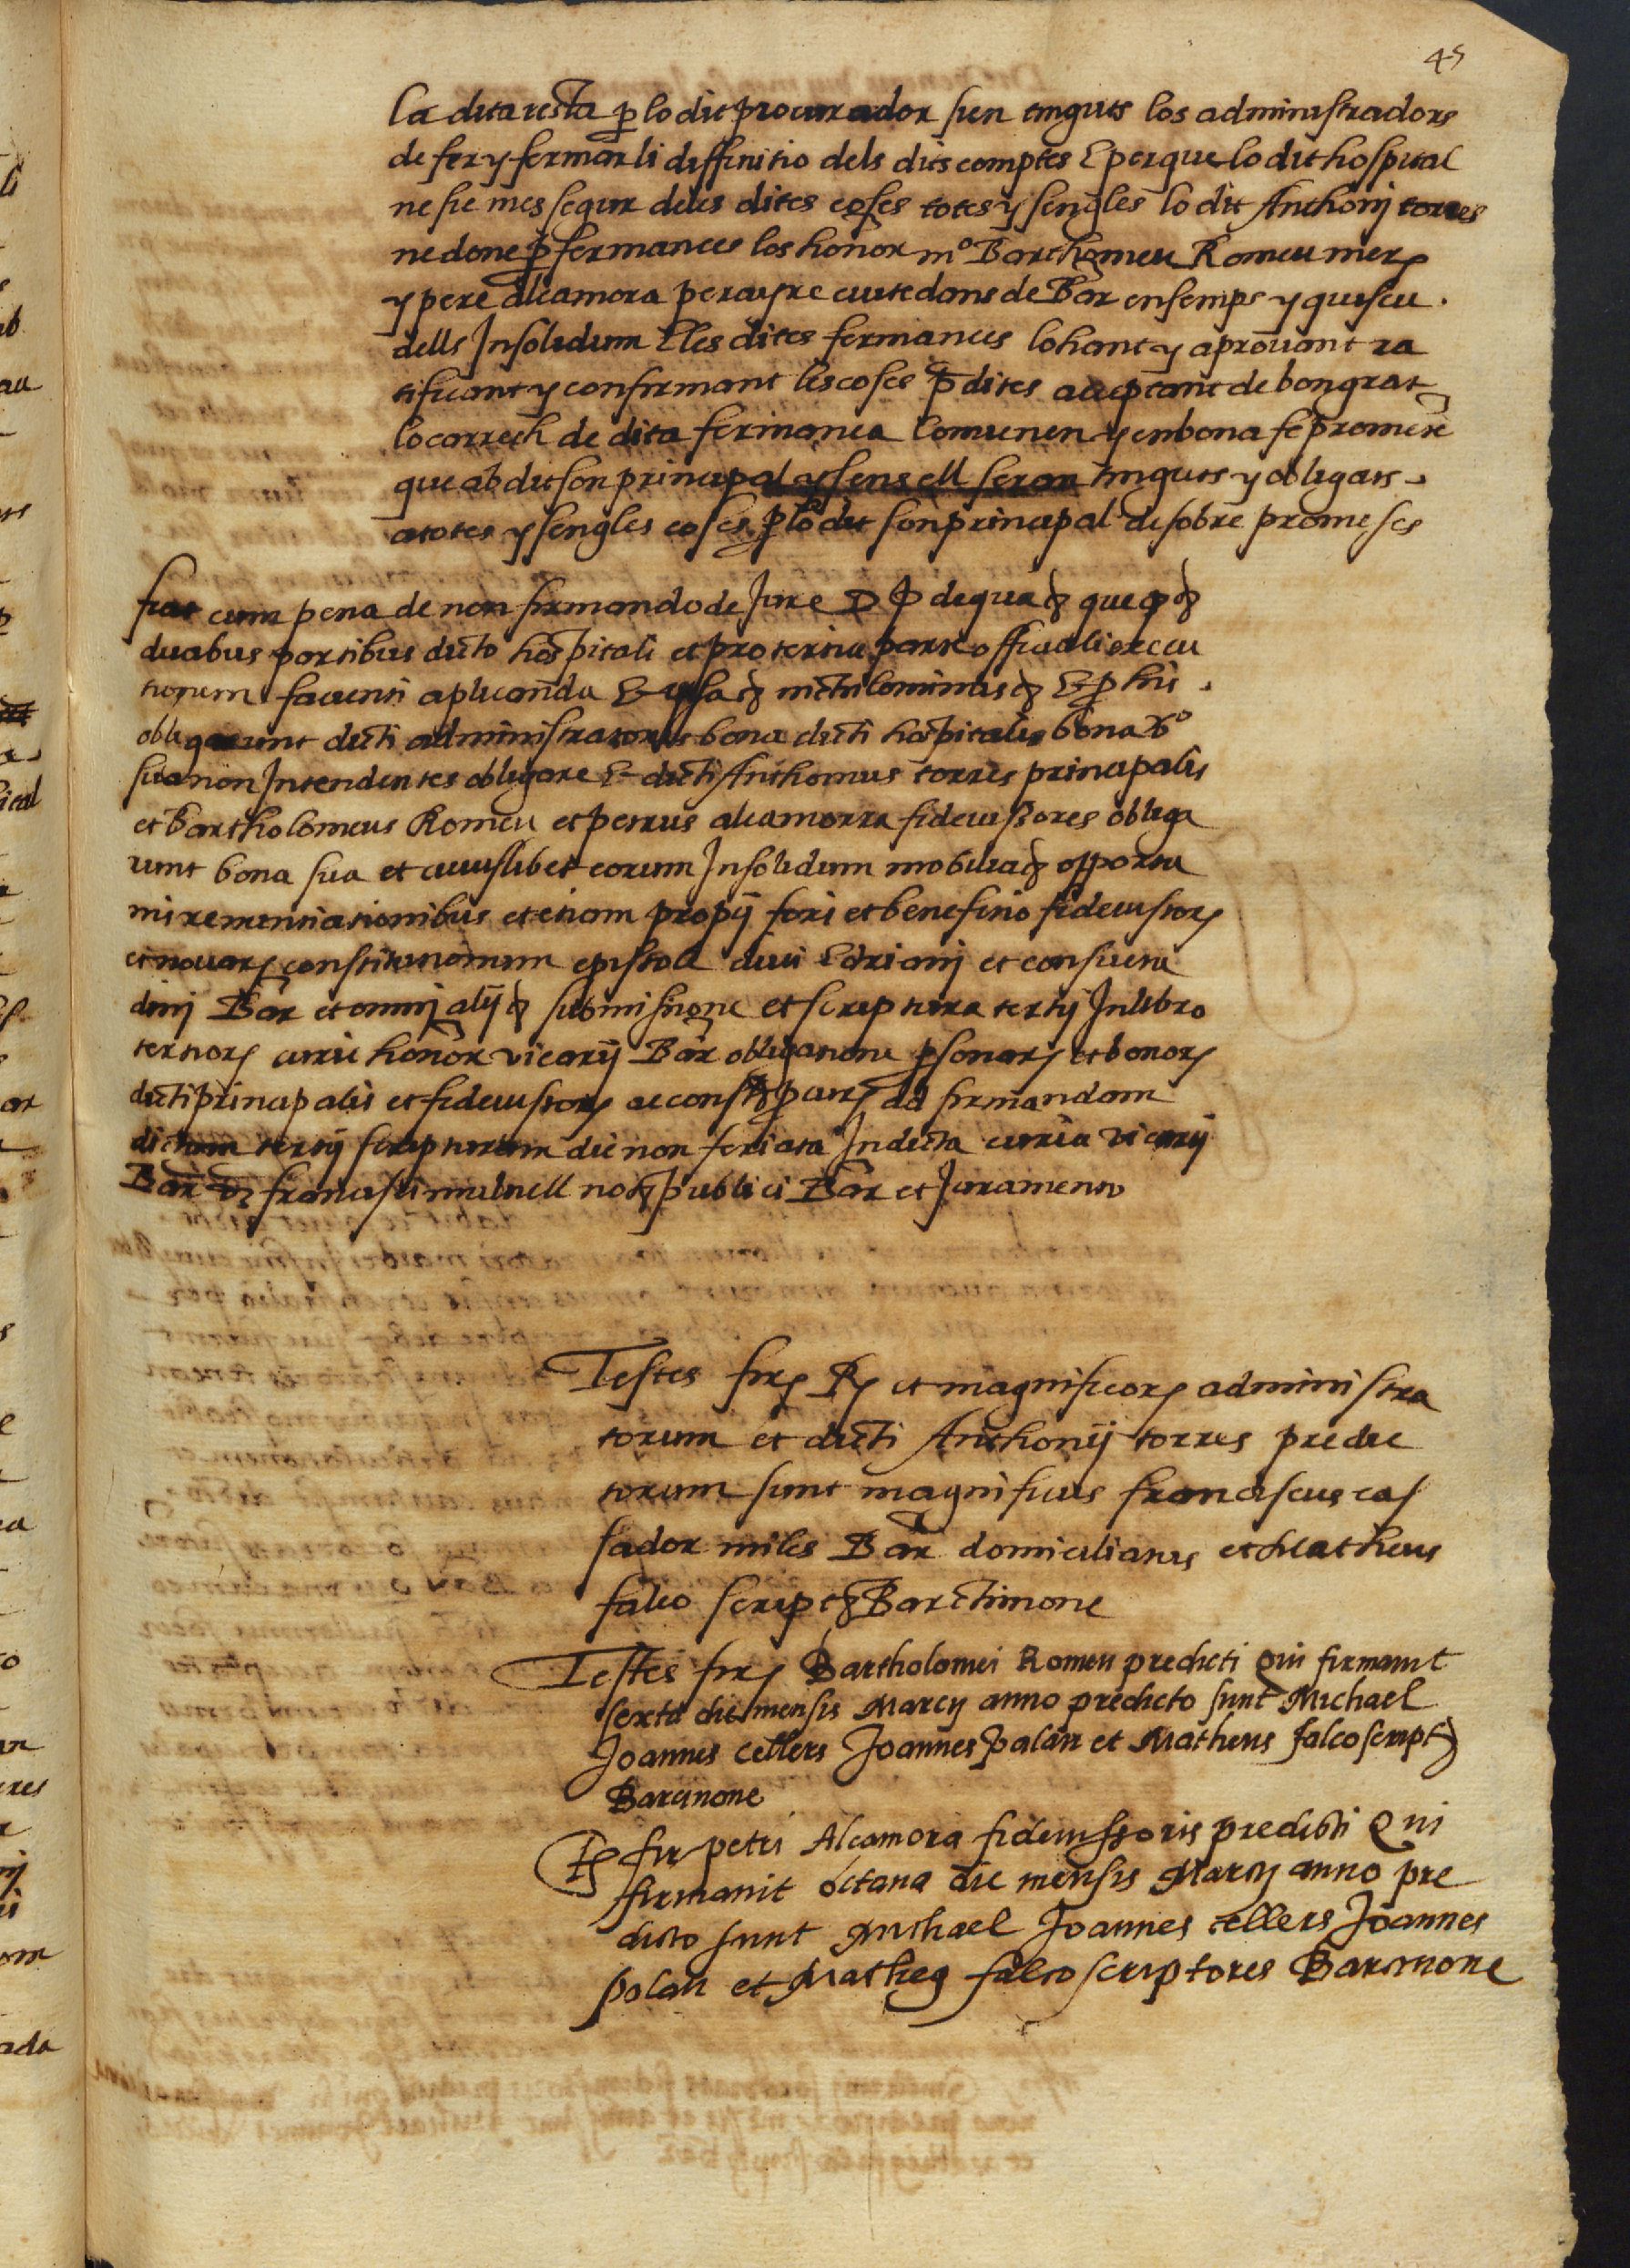 45
la dita resta p lo dit procurador sien tinguts los administradors
de fer y fermar li diffinitio dels dits comptes E perque lo dit hospital
ne sie mes segur de les dites coses totes y sengles lo dit Anthonij torres
ne done p fermances los honor mº Barthomeu Romeu mer
y pere alcamora perayre ciutedans de Bar ensemps y quiscu
dells Insolidum E les dites fermances lohant y aprovant ra
tificant y confirmant les coses p dites acceptant de bon grat
lo carrech de dita fermanca Convenen y en bona fe prometē
que ab dit son principal y sens ell seran tinguts y obligats
a totes y sengles coses p lo dit son principal desobre promeses
fiat cum pena de non firmando de Jure de qua que
duabus partibus dicto hospitali et pro tertia parte officiali execu
tionem facienti aplicanda & nichilominus & p his
obligarunt dicti administratores bona dicti hospitalis bona vº
sua non Intendentes obligare & dicti Anthonius torres principalis
et Bartholomeus Romeu et petrus alcamorra fideiussores obliga
runt bona sua et cuiuslibet eorum Insolidum mobilia opportu
nis renuntiationibus et etiam propij fori et benefitio fideiussor
et novar constitutionum epistola divi Adrianj et consuetu
dinj Bar et omnj alij submissione et scriptura tertij In libro
tertior curie honor vicarij Bar obligatione psonar et bonor
dicti principalis et fideiussor ac const p cur ad firmandam
dictam tertij scripturam die non feriata In dicta curia vicarij
Bar francisci mulnell not publici Bar et Juramento
Testes fir R et magnificor administra
torum et dicti Anthonij torres predic
torum sunt magnificus franciscus cas
sador miles Bar domiciliatus et Matheus
falco script Barchinone
Testes fir Bartholomei Romeu predicti Qui firmavit
sexta die mensis Marcij anno predicto sunt Michael
Joannes cellers Joannes palau et Matheus falco script
Barcinone
Ts fir petri Alcamora fideiussoris predicti Qui
firmavit octava die mensis Marcij anno pre
dicto sunt Michael Joannes cellers Joannes
palau et Matheus falco scriptores Barcinone